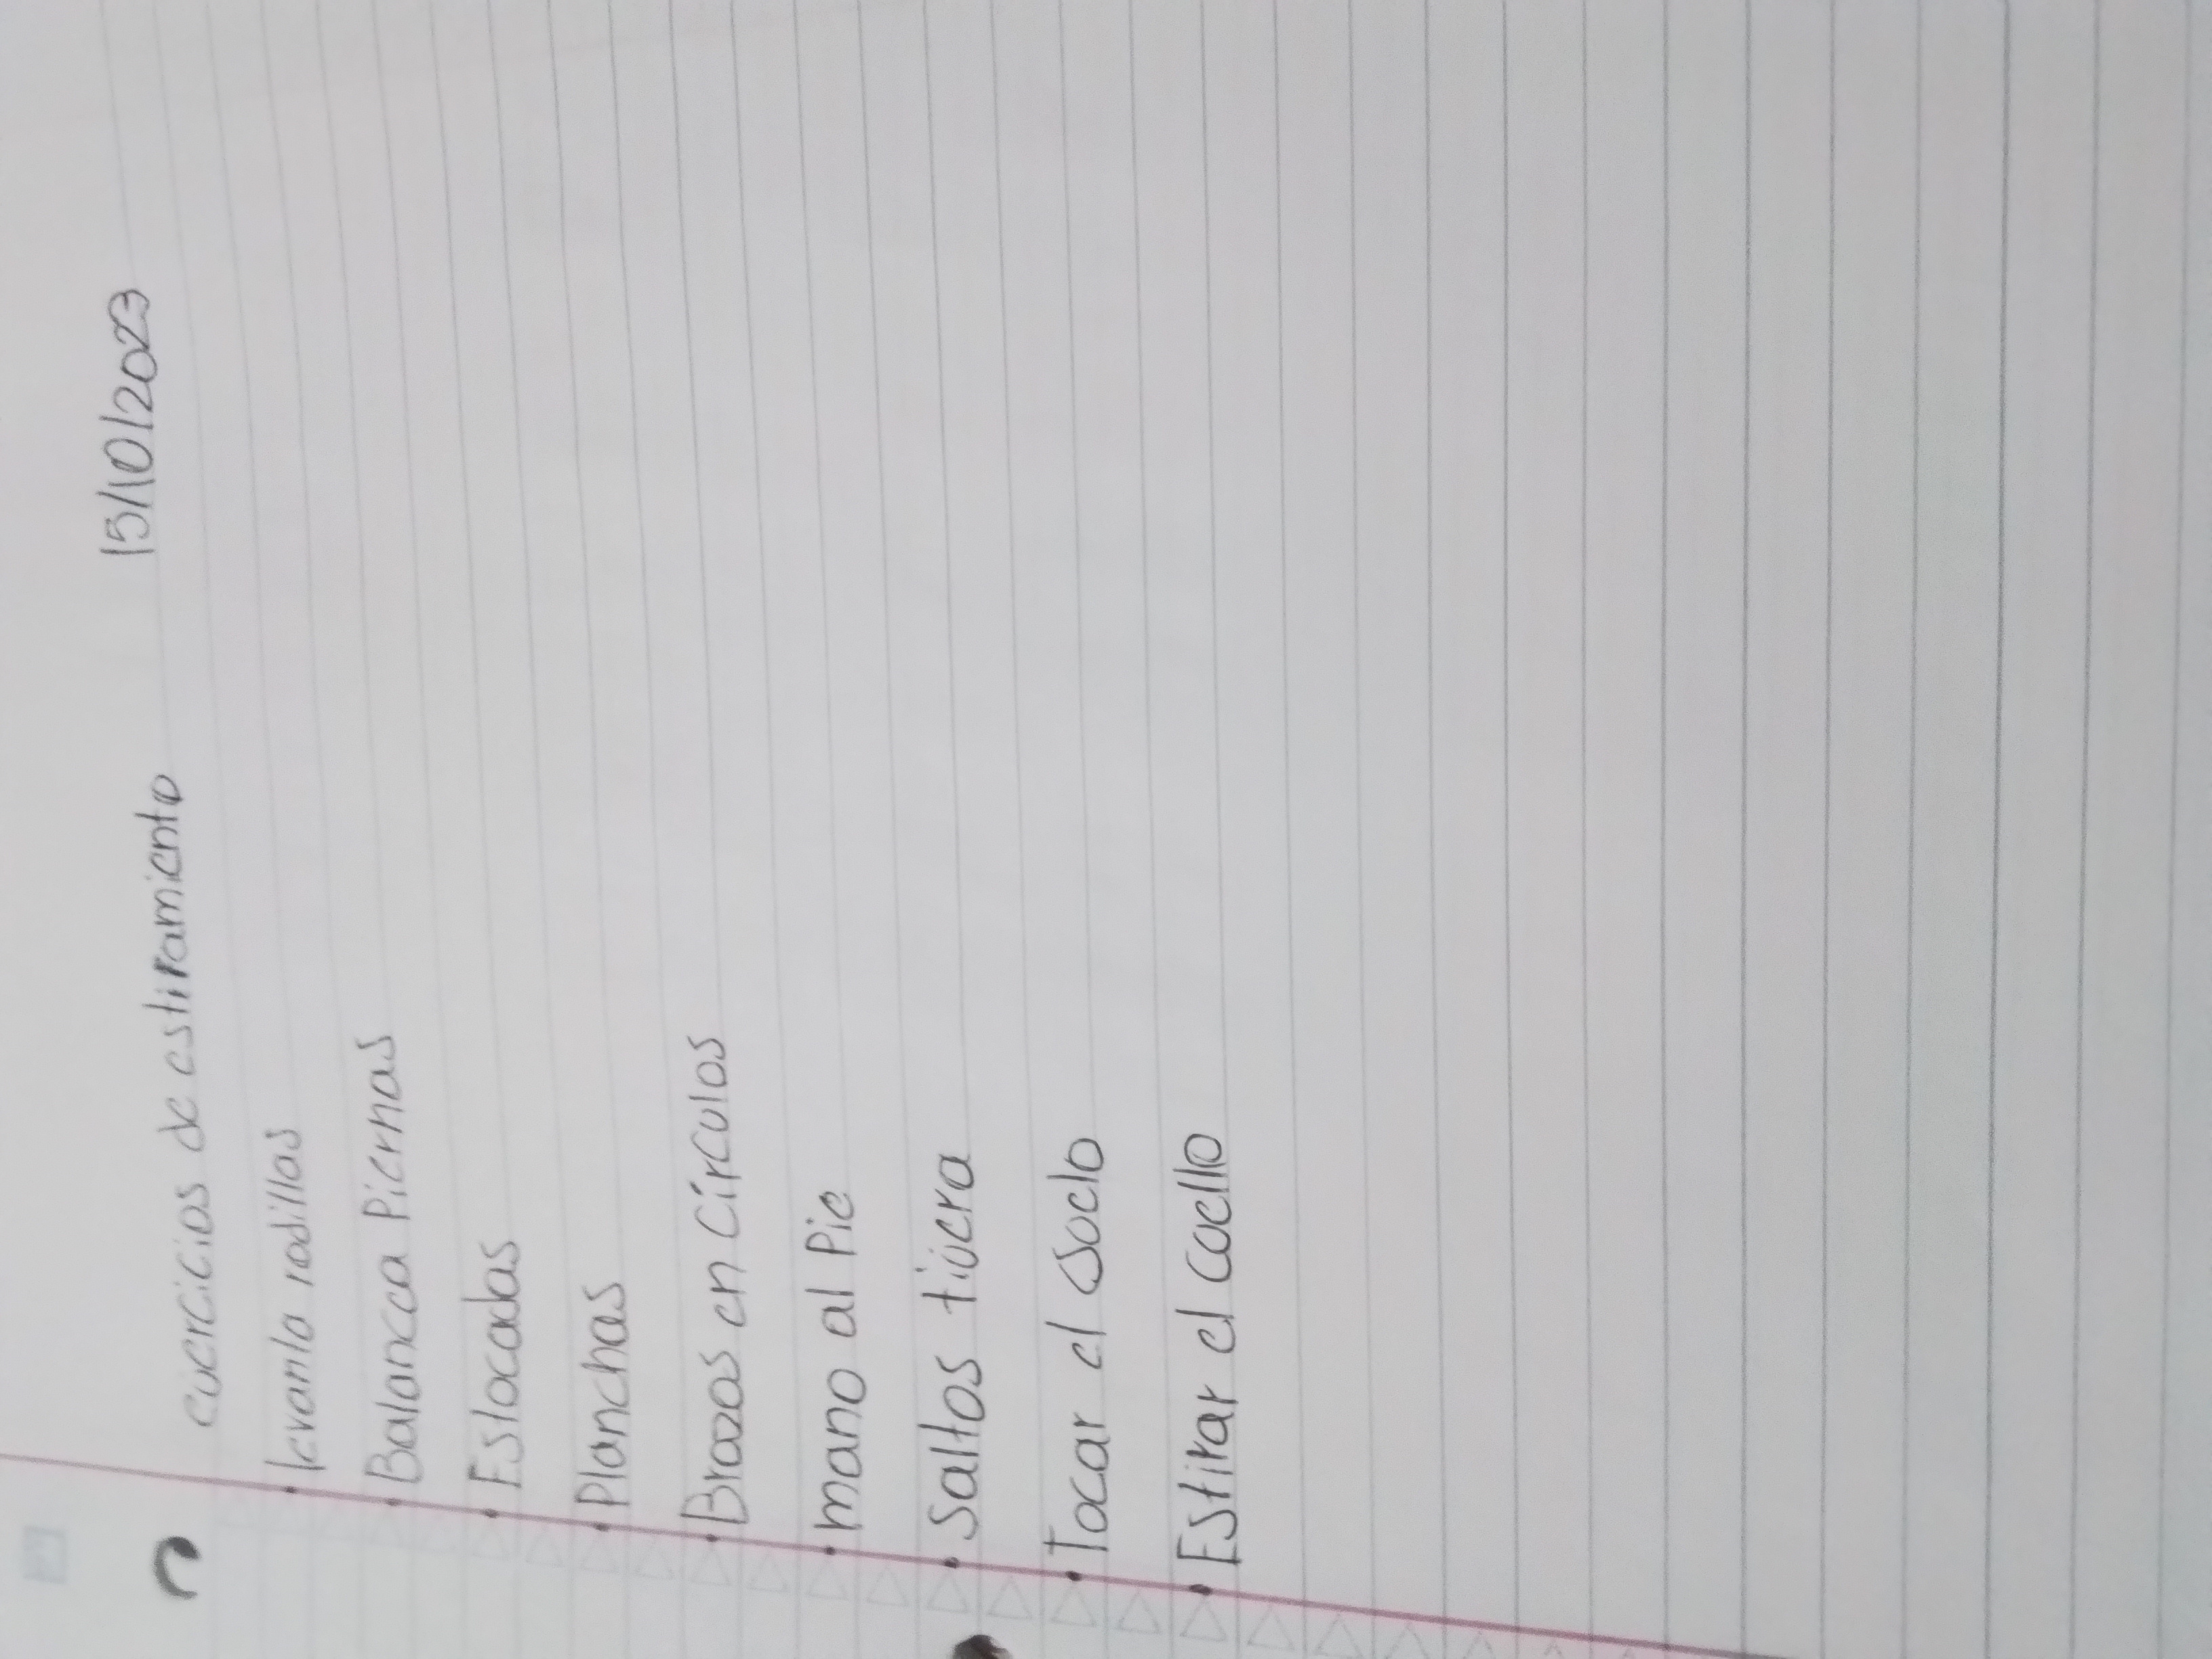 15/10/2023
ejercicios de estiramiento
• levanta rodillas
• Balancea Piernas
• Estocadas
• Planchas
• Brazos en Círculos
• mano al Pie
• saltos tijera
• Tocar el suelo
• Estirar el cuello